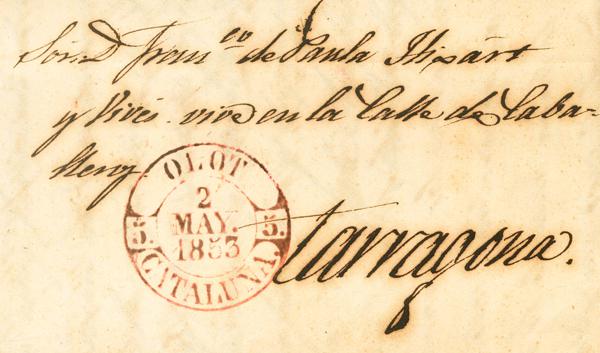 Sor. D. Fran.co de Paula Hixart
y Vives. vive en la Calle de Caba-
llery.
OLOT
2
MAY.
1853
5. 5.
CATALUÑA.
Tarragona.